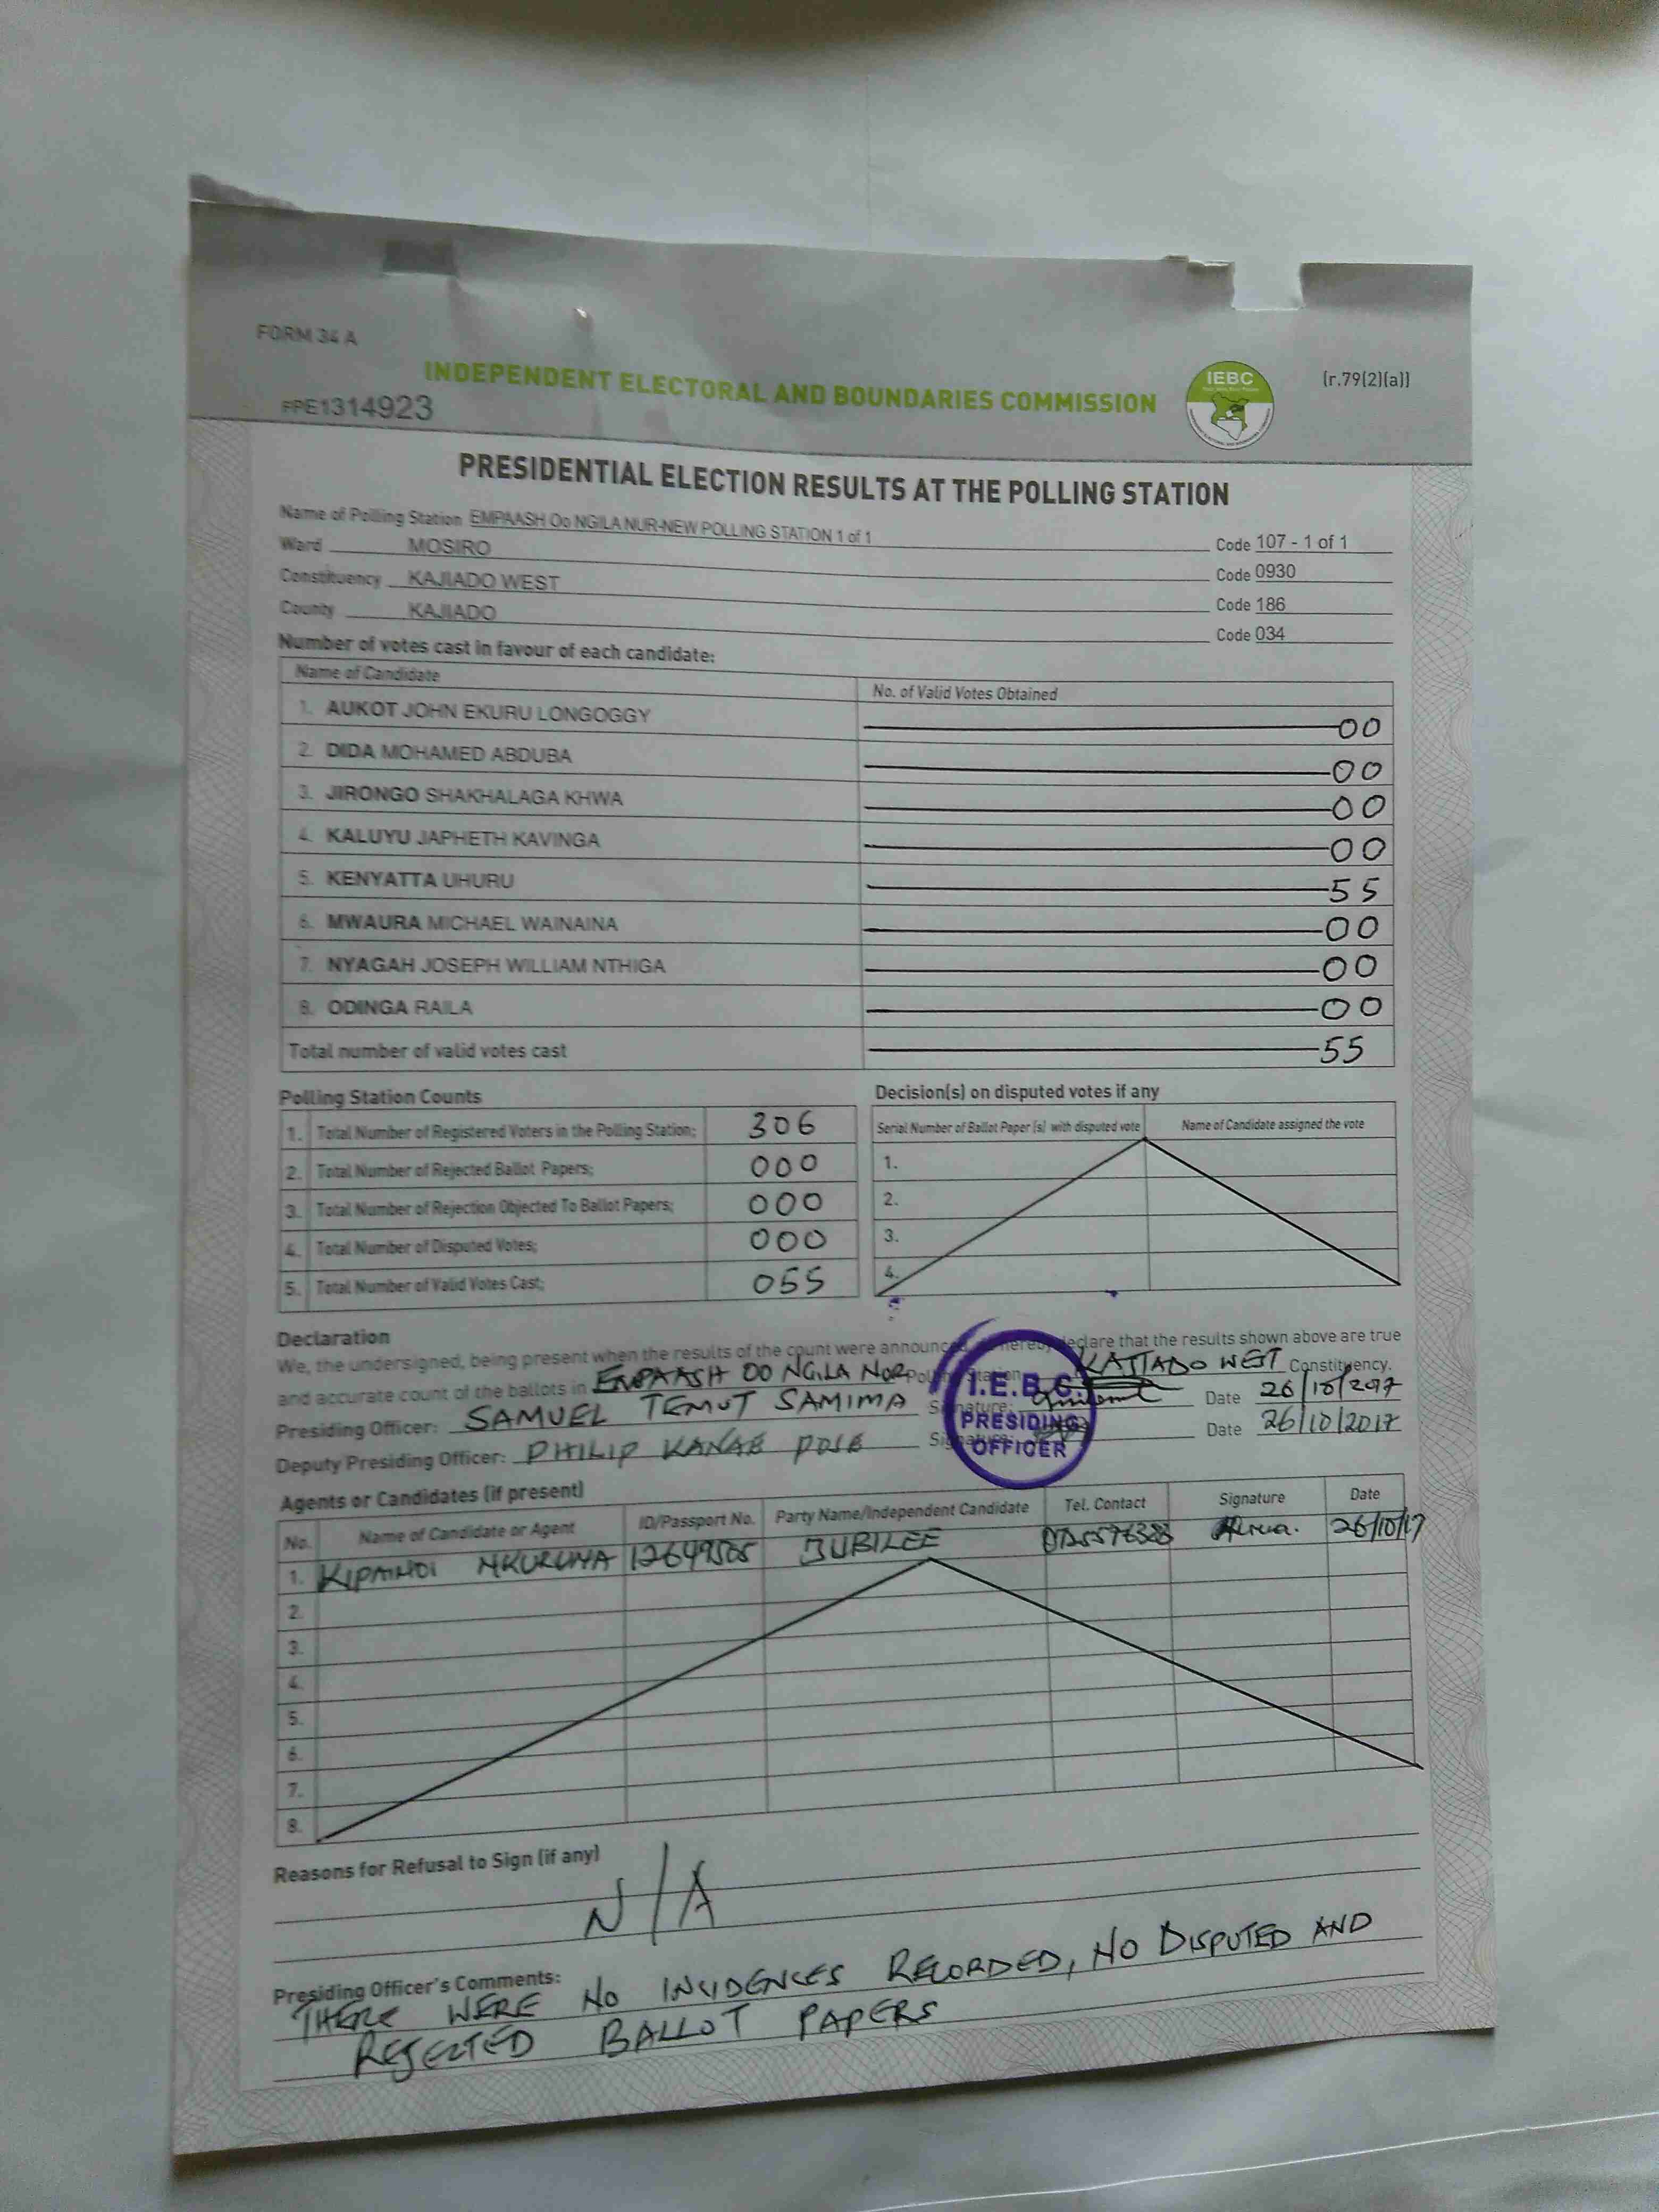 FORM 34 A
INDEPENDENT ELECTORAL AND BOUNDARIES COMMISSION
IEBC
(r.79(2)(a))
FPE1314923
PRESIDENTIAL ELECTION RESULTS AT THE POLLING STATION
Name of Polling Station EMPAASH Oo NGILA NUR-NEW POLLING STATION 1 of 1 Code 107 - 1 of 1
Ward MOSIRO Code 0930
Constituency KAJIADO WEST Code 186
County KAJIADO Code 034
Number of votes cast in favour of each candidate:
Name of Candidate No. of Valid Votes Obtained
1. AUKOT JOHN EKURU LONGOGGY 00
2. DIDA MOHAMED ABDUBA 00
3. JIRONGO SHAKHALAGA KHWA 00
4. KALUYU JAPHETH KAVINGA 00
5. KENYATTA UHURU 55
6. MWAURA MICHAEL WAINAINA 00
7. NYAGAH JOSEPH WILLIAM NTHIGA 00
8. ODINGA RAILA 00
Total number of valid votes cast 55
Polling Station Counts
1. Total Number of Registered Voters in the Polling Station; 306
2. Total Number of Rejected Ballot Papers; 000
3. Total Number of Rejection Objected To Ballot Papers; 000
4. Total Number of Disputed Votes; 000
5. Total Number of Valid Votes Cast; 055
Decision(s) on disputed votes if any
Serial Number of Ballot Paper (s) with disputed vote Name of Candidate assigned the vote
1.
2.
3.
4.
Declaration
We, the undersigned, being present when the results of the count were announced, hereby declare that the results shown above are true
and accurate count of the ballots in EMPAASH OO NGILA NOR Polling Station KAJIADO WEST Constituency.
Presiding Officer: SAMUEL TEMUT SAMIMA Signature: Date 26/10/2017
Deputy Presiding Officer: PHILIP KANAE Signature: Date 26/10/2017
I.E.B.C.
PRESIDING
OFFICER
Agents or Candidates (if present)
No. Name of Candidate or Agent ID/Passport No. Party Name/Independent Candidate Tel. Contact Signature Date
1. JUBILEE 26/10/17
2.
3.
4.
5.
6.
7.
8.
Reasons for Refusal to Sign (if any)
N/A
Presiding Officer's Comments:
THERE WERE NO INCIDENCES RECORDED, NO DISPUTED AND
REJECTED BALLOT PAPERS